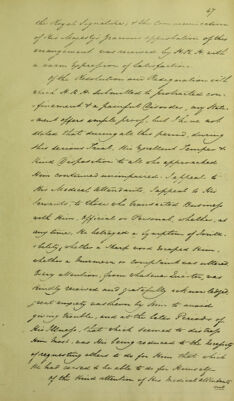 47
the Royal Signature, & the communication
of His Majesty's gracious approbation of this
arrangement was received by H.R.H. with
a warm expression of Satisfaction.
Of the Resolution and Resignation with
which H.R.H. submitted to protracted con-
finement & a painful Disorder, my State-
ment offers ample proof, but I have not
stated that during all this period, during
this serious Trial, His Excellent Temper &
Kind Disposition to all who approached
Him continued unimpaired. I appeal to
His Medical Attendants, I appeal to His
Servants, to those who transacted Business
with Him, Official or Personal, whether, at
any time, He betrayed a Symptom of Irrita-
bility, whether a Sharp word escaped Him,
whether a Murmur or complaint was uttered.
Every Attention, from whatever Quarter, was
kindly received and gratefully acknowledged,
great anxiety was shewn by Him to avoid
giving trouble, and at the later Periods of
His Illness, that which seemed to distress
Him most was His being reduced to the necessity
of requesting others to do for Him that which
He had ceased to be able to do for Himself.
Of the kind attention of His Medical Attendants